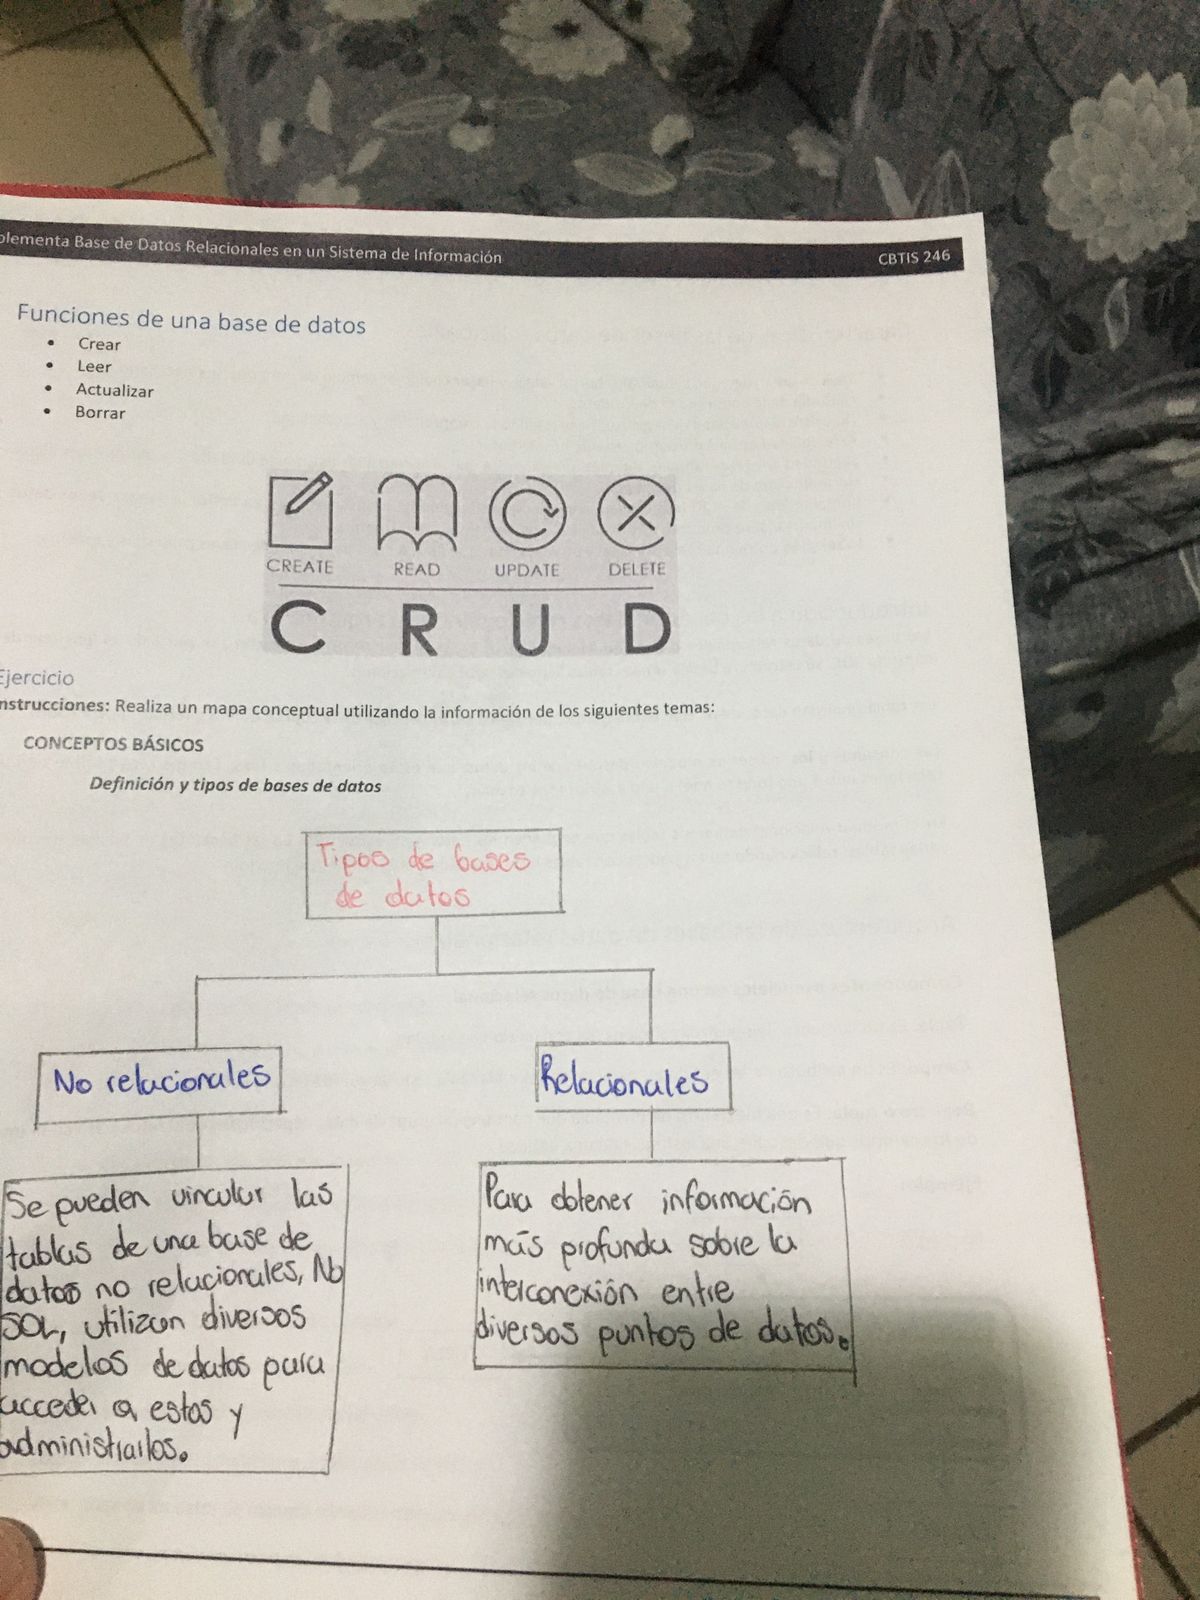 plementa Base de Datos Relacionales en un Sistema de Información
CBTIS 246
Funciones de una base de datos
• Crear
• Leer
• Actualizar
• Borrar
CREATE READ UPDATE DELETE
C R U D
Ejercicio
nstrucciones: Realiza un mapa conceptual utilizando la información de los siguientes temas:
CONCEPTOS BÁSICOS
Definición y tipos de bases de datos
Tipos de bases
de datos
No relacionales
Relacionales
Se pueden vincular las
tablas de una base de
datos no relacionales, No
SQL, utilizan diversos
modelos de datos para
acceder a estos y
administrarlos.
Para obtener información
más profunda sobre la
interconexión entre
diversos puntos de datos.